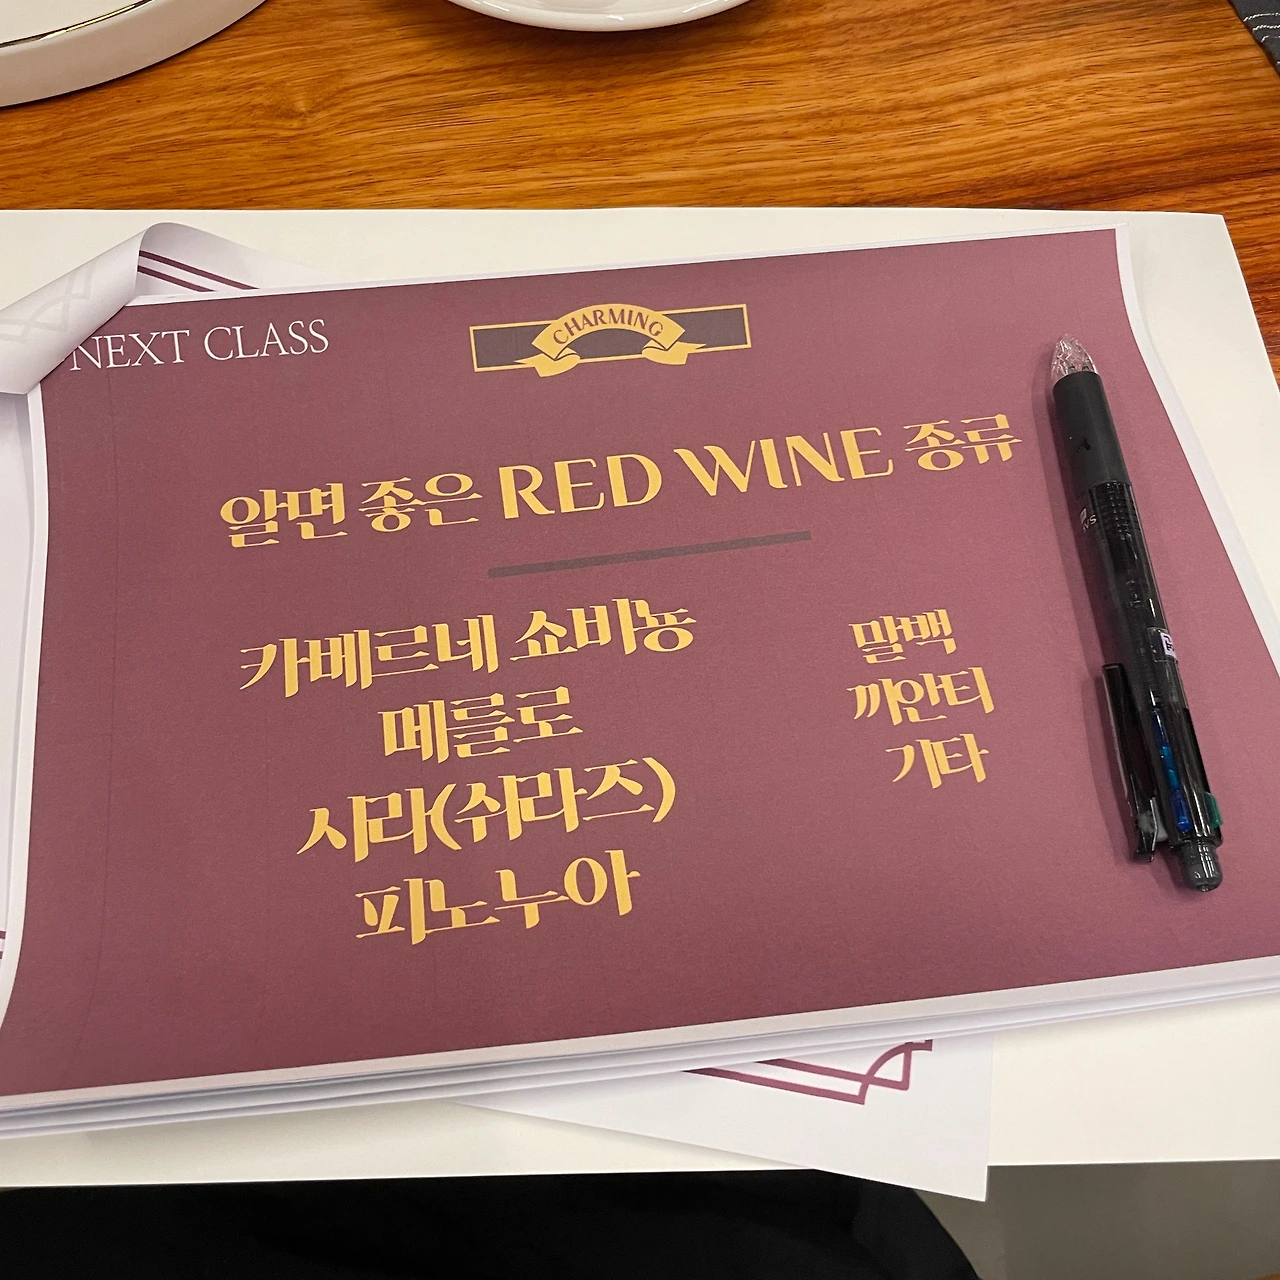 NEXT CLASS
CHARMING
알면 좋은 RED WINE 종류
카베르네 쇼비뇽
메를로
시라(쉬라즈)
피노누아
말백
끼안티
기타